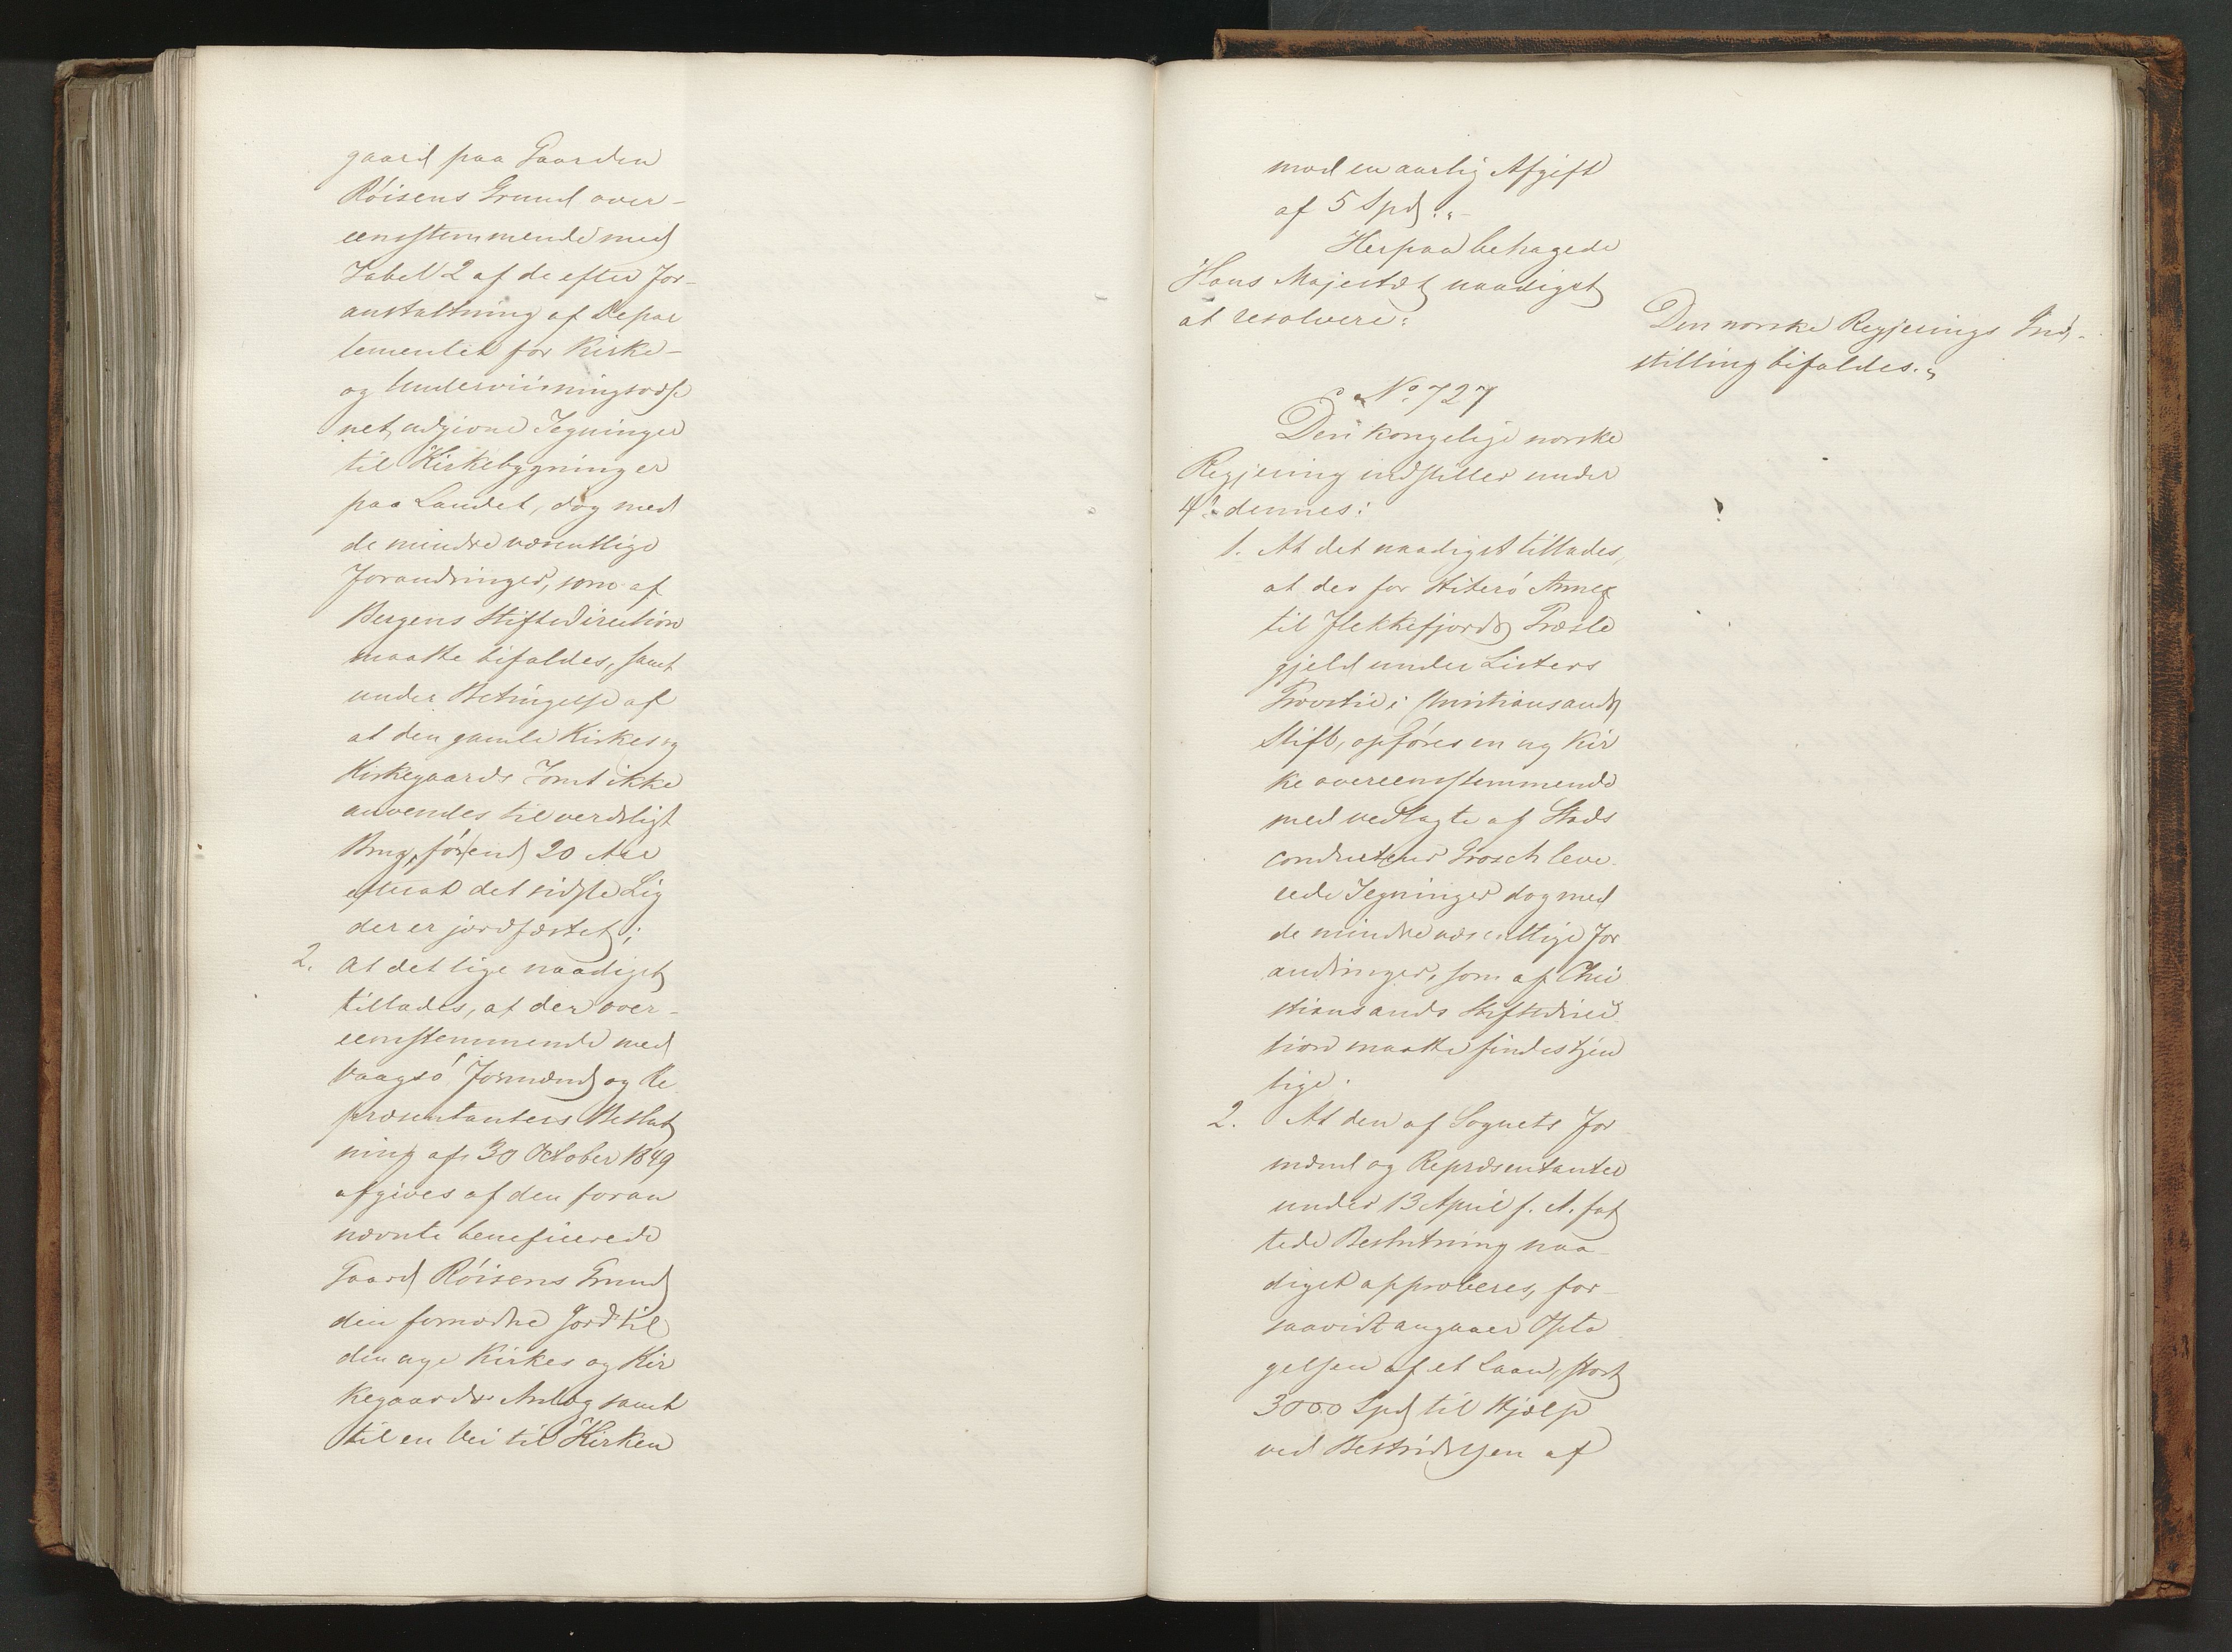 gaard paa Gaarden
Röisens Grund over-
eensstemmende med
Tabel 2 af de efter For-
anstaltning af Depar
tementet for Kirke-
og Underviisningsvæse
net udgivne Tegninger
til Kirkebygninger
paa Landet, dog med
de mindre væsentlige
Forandringer, som af
Bergens Stiftsdirection
maatte bifaldes, samt
under Betingelse af
at den gamle Kirkes og
Kirkegaards Tomt ikke
anvendes til verdsligt
Brug, förend 20 Aar
efterat det sidste Lig
der er jordfæstet;
2. At det lige naadigst
tillades, at der over-
eensstemmende med
Vaagsö Formænds og Re
præsentanters Beslut
ning af 30 October 1849
afgives af den foran
nævnte beneficerede
Gaard Röisens Grund
den fornødne Jord til
den nye Kirkes og Kir
kegaards Anlæg samt
til en Vei til Kirken
mod en aarlig Afgift
af 5 Spd."
Herpaa behagede
Hans Majestæt naadigst
at resolvere:
Den norske Regjerings Ind-
stilling bifaldes."
No 727
Den kongelige norske
Regjering indstiller under
4de dennes:
1. At det naadigst tillades,
at der for Hiterö Annex
til Flekkefjords Præste
gjeld under Listers
Provstie i Christiansands
Stift, opföres en ny Kir
ke overeensstemmende
med vedlagte af Stads
conducteur Grosch leve
rede Tegninger dog med
de mindre væsentlige For
andringer, som af Chri
stiansands Stiftsdirec
tion maatte findes tjen
lige.
2. At den af Sognets For
mænd og Repræsentanter
under 13 April f. A. fat
tede Beslutning naa-
digst approberes, for-
saavidt angaaer Opta
gelsen af et Laan, stort
3000 Spd til Hjælp
ved Bestridelsen af